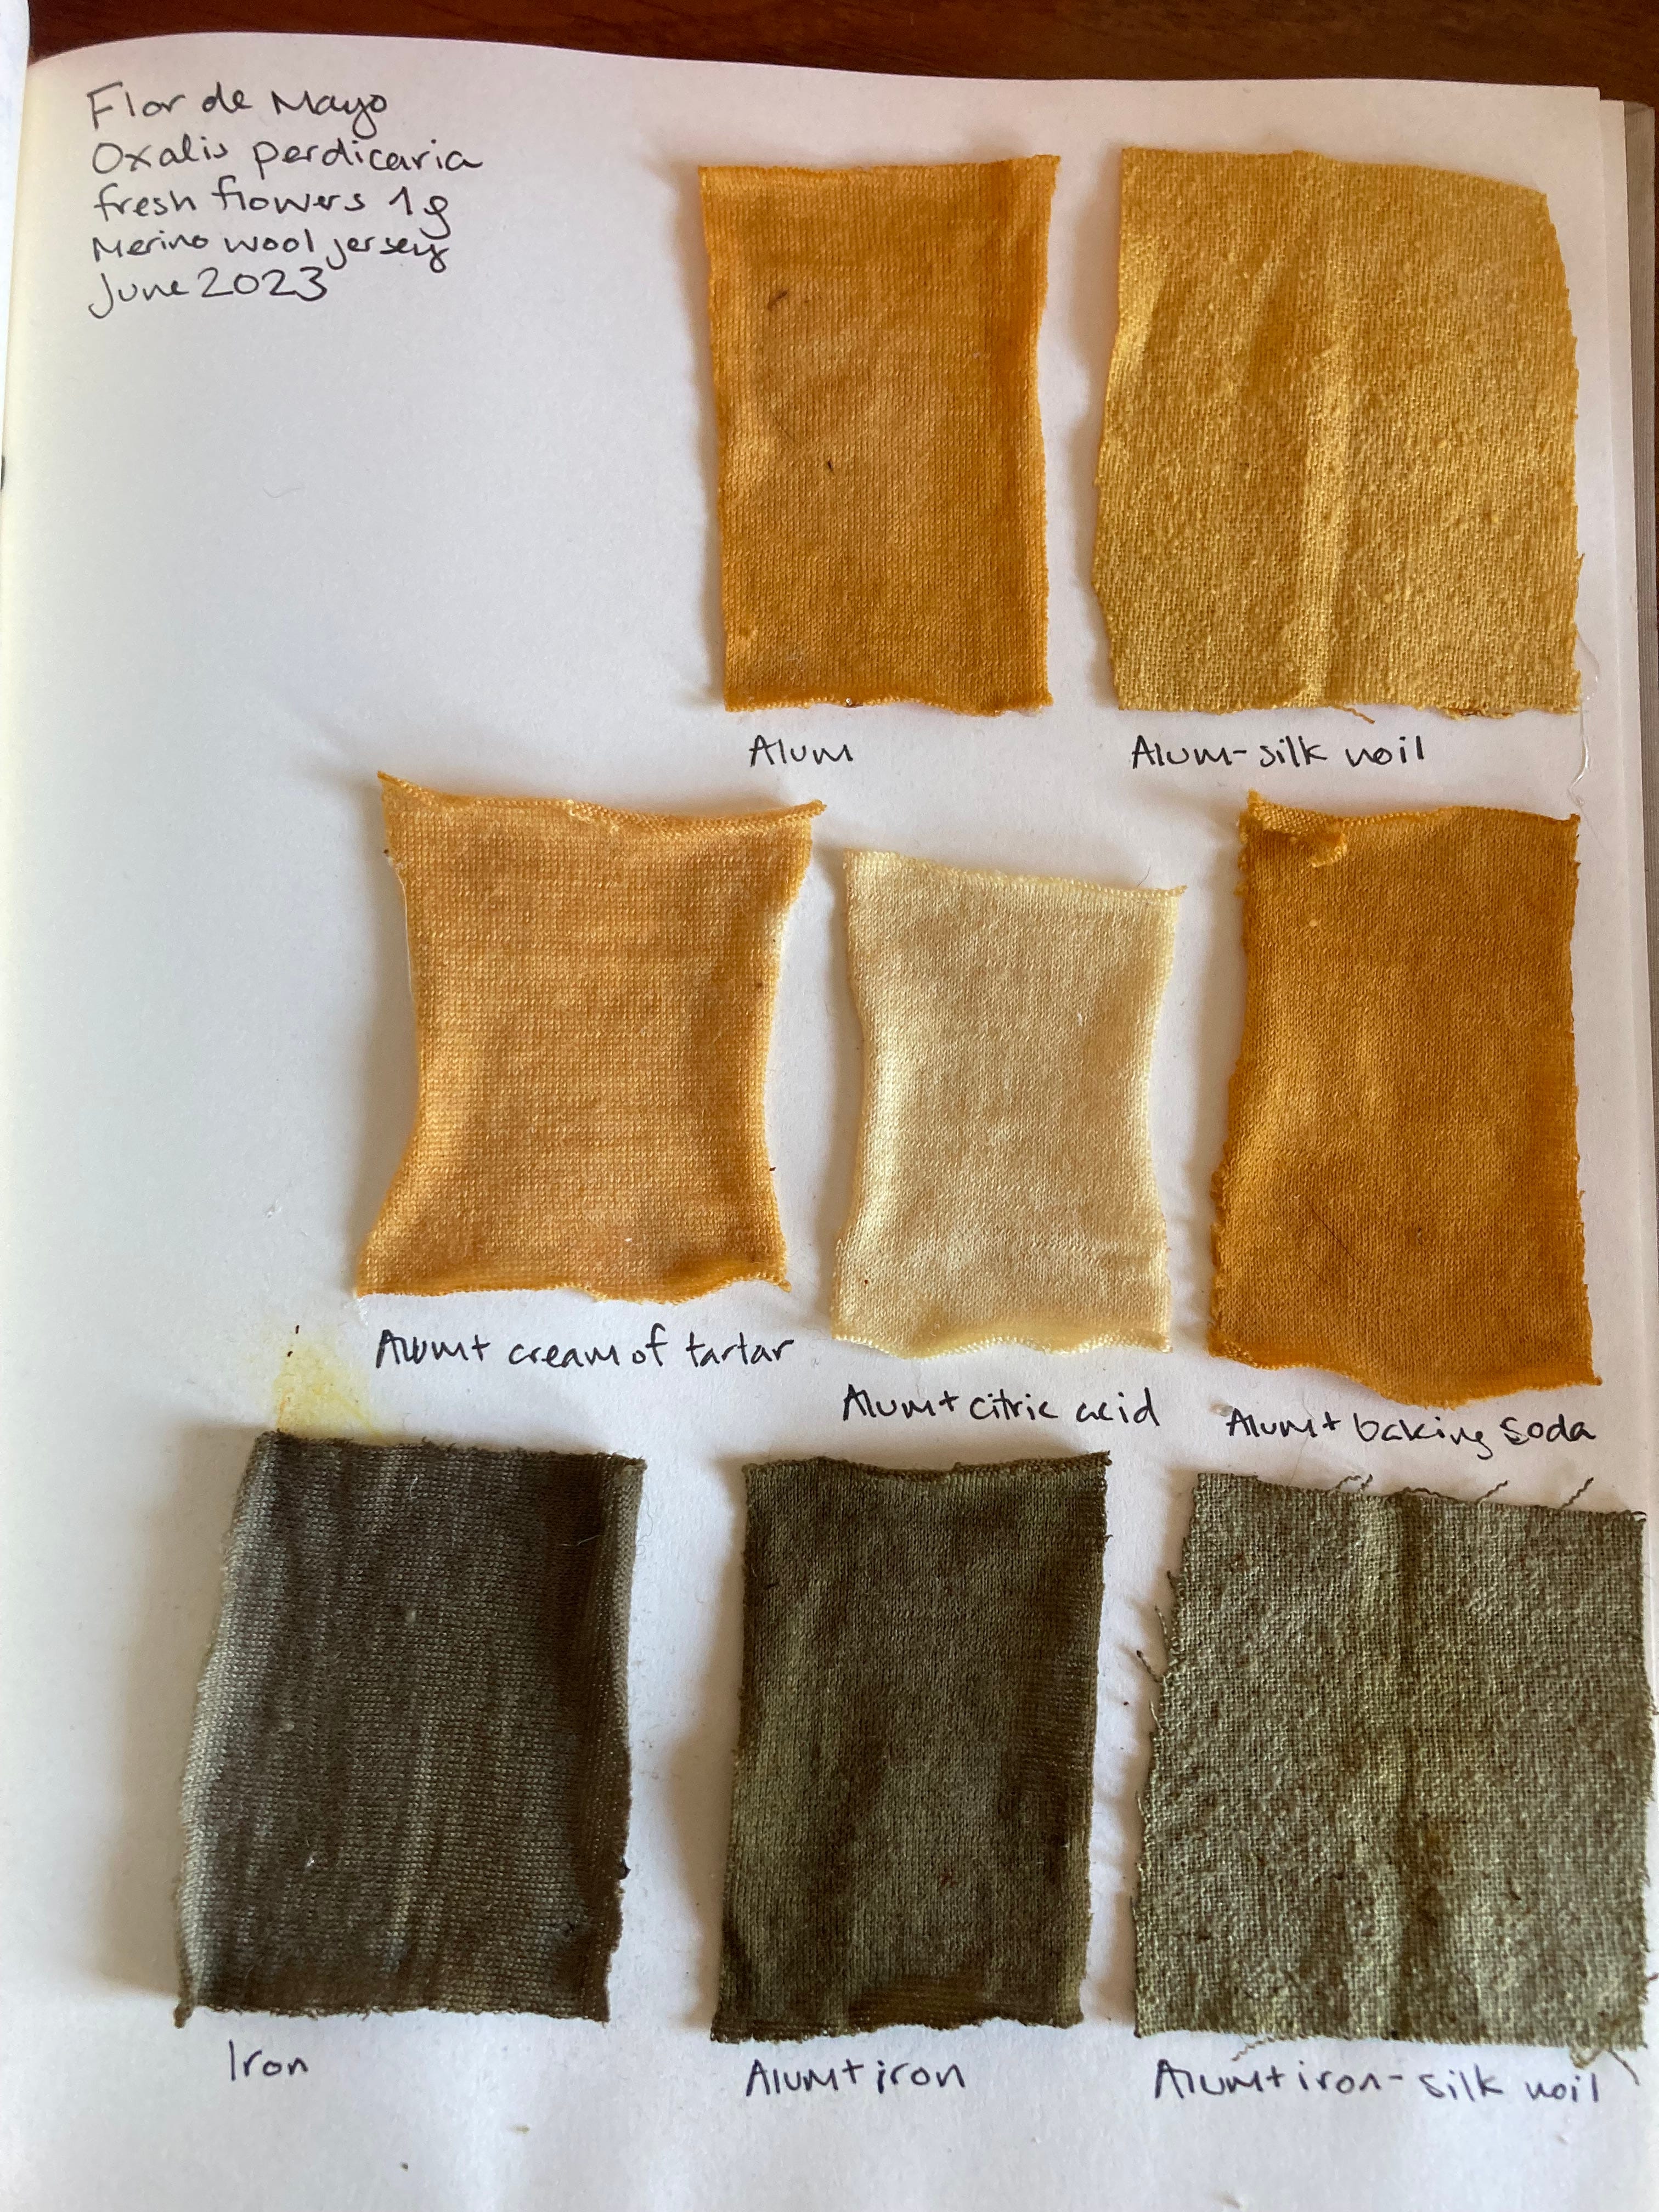 Flor de Mayo
Oxalis perdicaria
fresh flowers 1g
Merino wool jersey
June 2023
Alum
Alum-silk noil
Alum+ cream of tartar
Alum+ citric acid
Alum+ baking soda
Iron
Alum+iron
Alum+iron-silk noil